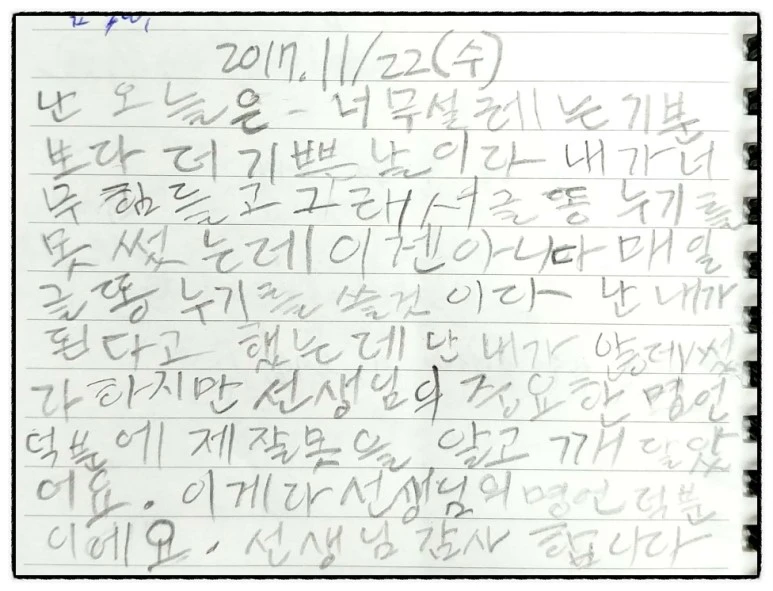 2017.11/22(수)
난 오늘은 - 너무설레는기분
보다 더 기쁜 날이다 내가너
무 힘들고 그래서글똥누기를
못 썼는데 이젠아니다 매일
글똥누기를 쓸것이다 난 내가
된다고 했는데 난 내가
다 하지만 선생님의 중요한 명언
덕분에 제잘못을 알고 깨달았
어요. 이게다 선생님의 명언덕분
이에요. 선생님 감사 합니다